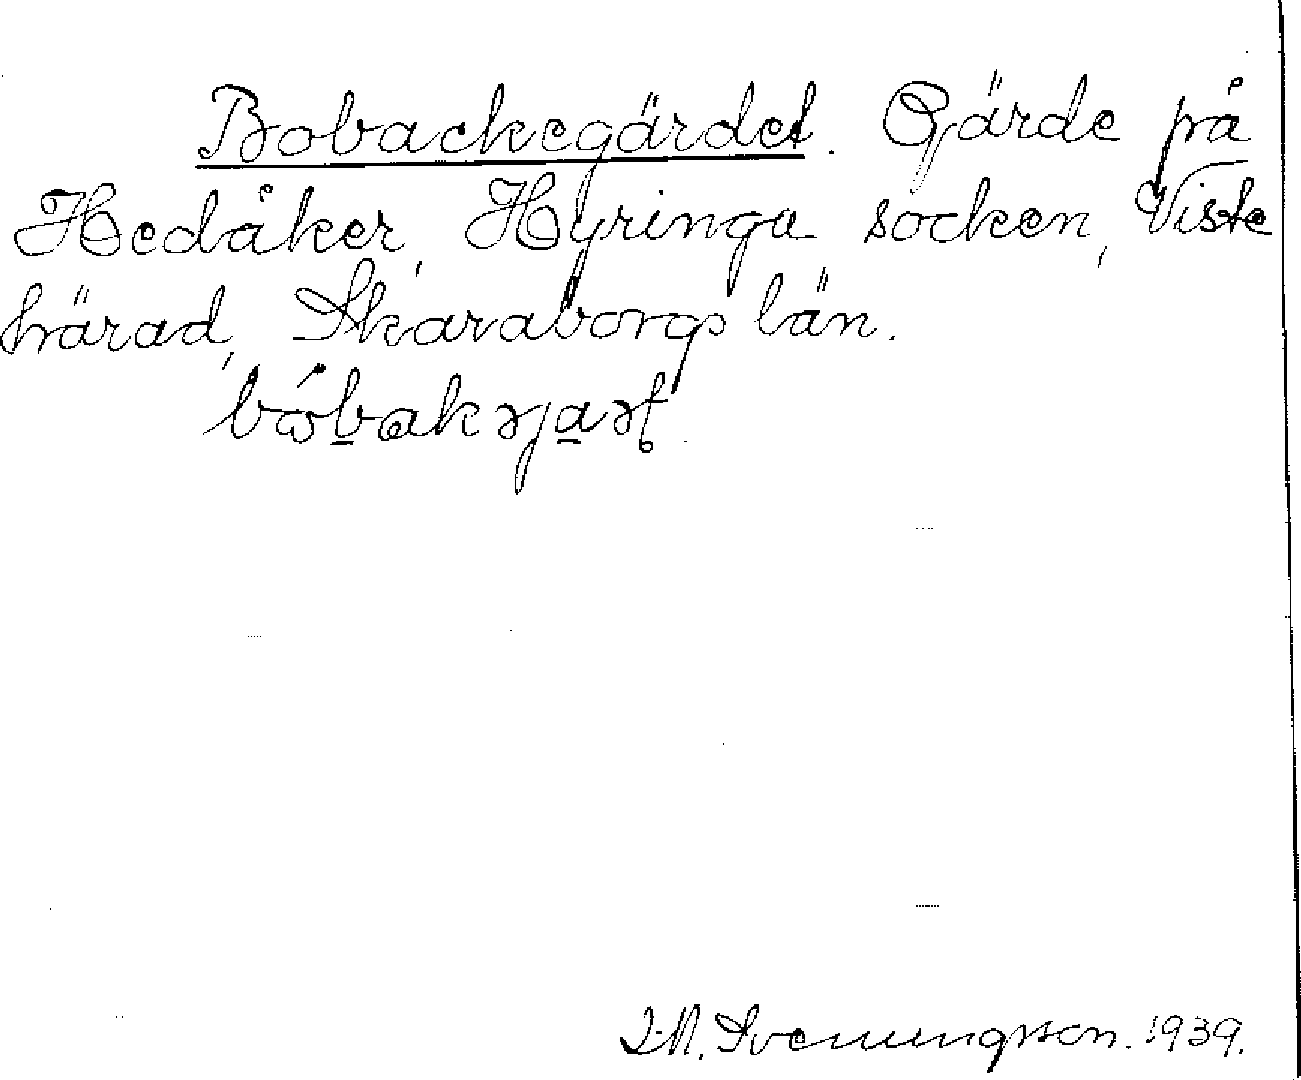 Bobackegärdet. Gärde på
Hedåker, Hyringa socken, Viste
härad, Skaraborgs län.
Svenungsson. 1939.